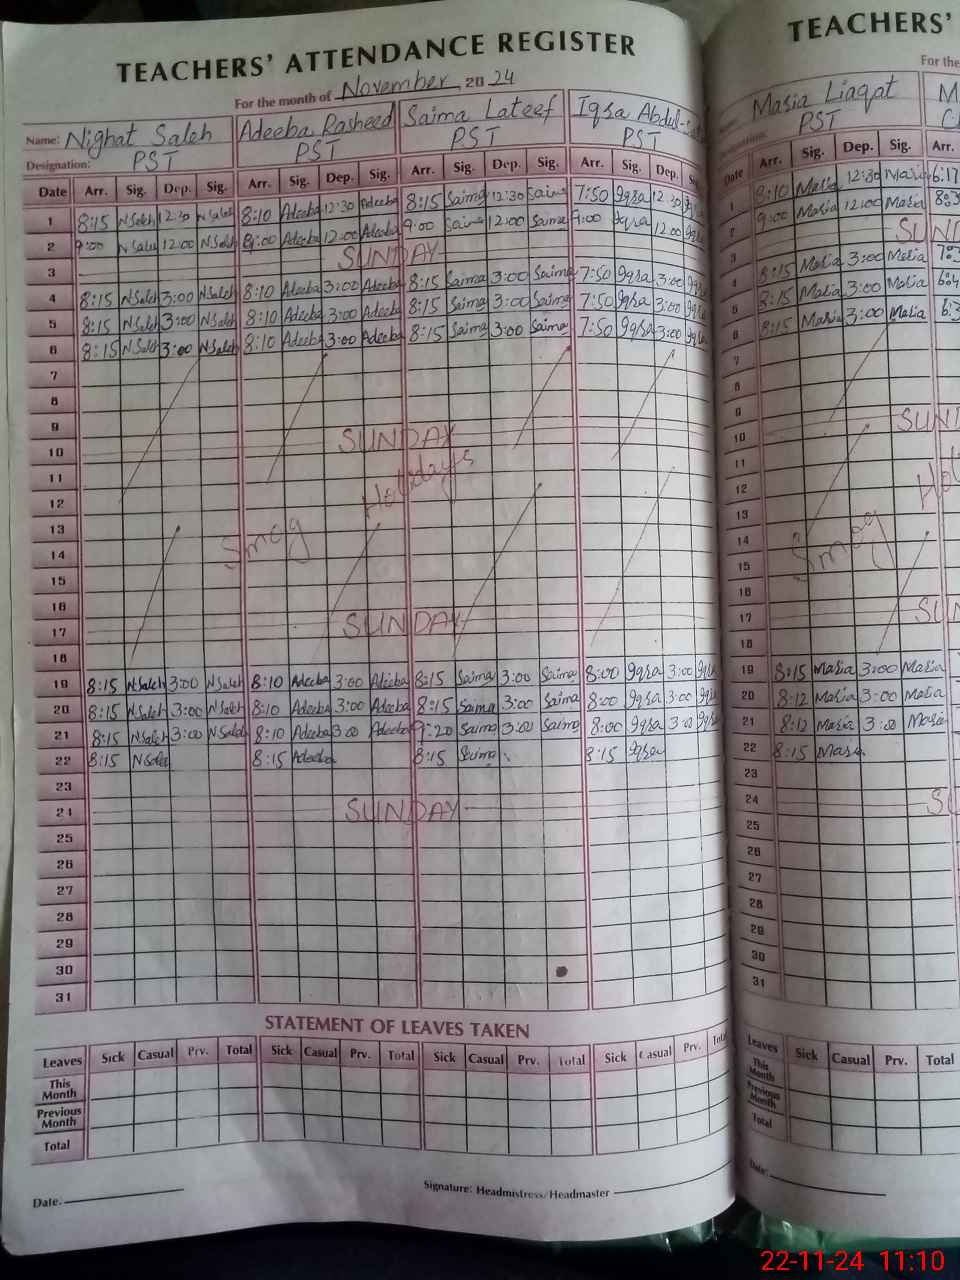 TEACHERS' ATTENDANCE REGISTER
For the month of November 2024
Name: Nighat Saleh Adeeba Rasheed Saima Lateef Iqra Abdul-
Designation: PST PST PST PST
Date Arr. Sig. Dep. Sig. Arr. Sig. Dep. Sig. Arr. Sig. Dep. Sig. Arr. Sig. Dep.
1 8:15 NSaleh 12:30 NSaleh 8:10 Adeeba 12:30 Adeeba 8:15 Saima 12:30 Saima 7:50 Iqra 12:30 Iqra
2 9:00 NSaleh 12:00 NSaleh 9:00 Adeeba 12:00 Adeeba 9:00 Saima 12:00 Saima 9:00 Iqra 12:00 Iqra
3 SUNDAY
4 8:15 NSaleh 3:00 NSaleh 8:10 Adeeba 3:00 Adeeba 8:15 Saima 3:00 Saima 7:50 Iqra 3:00 Iqra
5 8:15 NSaleh 3:00 NSaleh 8:10 Adeeba 3:00 Adeeba 8:15 Saima 3:00 Saima 7:50 Iqra 3:00 Iqra
6 8:15 NSaleh 3:00 NSaleh 8:10 Adeeba 3:00 Adeeba 8:15 Saima 3:00 Saima 7:50 Iqra 3:00 Iqra
7
8
9
10 SUNDAY
11
12
13 Smog Holidays
14
15
16
17 SUNDAY
18
19 8:15 NSaleh 3:00 NSaleh 8:10 Adeeba 3:00 Adeeba 8:15 Saima 3:00 Saima 8:00 Iqra 3:00 Iqra
20 8:15 NSaleh 3:00 NSaleh 8:10 Adeeba 3:00 Adeeba 8:15 Saima 3:00 Saima 8:00 Iqra 3:00 Iqra
21 8:15 NSaleh 3:00 NSaleh 8:10 Adeeba 3:00 Adeeba 9:20 Saima 3:00 Saima 8:00 Iqra 3:00 Iqra
22 8:15 NSaleh 8:15 Adeeba 8:15 Saima 8:15 Iqra
23
24 SUNDAY
25
26
27
28
29
30
31
STATEMENT OF LEAVES TAKEN
Leaves Sick Casual Prv. Total Sick Casual Prv. Total Sick Casual Prv. Total Sick Casual Prv. Total
This Month
Previous Month
Total
Date:
Signature: Headmistress/Headmaster
TEACHERS'
For the
Maria Liaqat
PST
Date Arr. Sig. Dep. Sig. Arr.
1 8:10 Maria 12:30 Maria
2 9:00 Maria 12:00 Maria
3 SUND
4 8:15 Maria 3:00 Maria
5 8:15 Maria 3:00 Maria
6 8:15 Maria 3:00 Maria
7
8
9
10 SUND
11
12
13 Smog Hol
14
15
16
17 SUN
18
19 8:15 Maria 3:00 Maria
20 8:12 Maria 3:00 Maria
21 8:12 Maria 3:00 Maria
22 8:15 Maria
23
24 SU
25
26
27
28
29
30
31
Leaves Sick Casual Prv. Total
This Month
Previous Month
Total
Date:
22-11-24 11:10